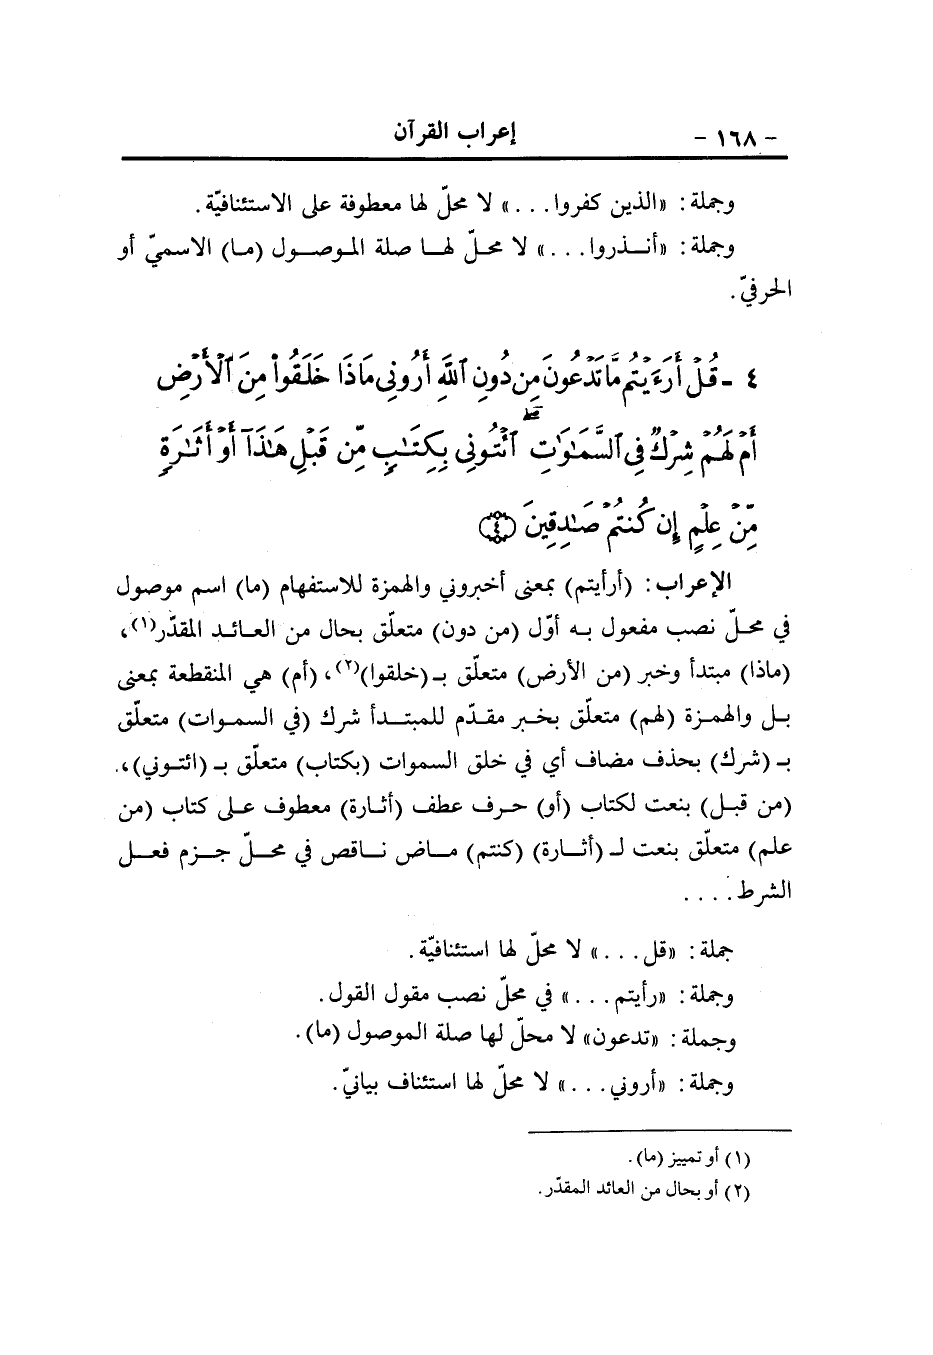 - ١٦٨ -
إعراب القرآن
وجملة: «الذين كفروا...» لا محلّ لها معطوفة على الاستئنافيّة.
وجملة: «أنـذروا...» لا محـلّ لهـا صلة المـوصـول (مـا) الاسميّ أو
الحرفيّ.
٤ - قُلْ أَرَءَيْتُم مَّا تَدْعُونَ مِن دُونِ ٱللَّهِ أَرُونِى مَاذَا خَلَقُوا۟ مِنَ ٱلْأَرْضِ
أَمْ لَهُمْ شِرْكٌ فِى ٱلسَّمَـٰوَٰتِ ۖ ٱئْتُونِى بِكِتَـٰبٍ مِّن قَبْلِ هَـٰذَآ أَوْ أَثَـٰرَةٍ
مِّنْ عِلْمٍ إِن كُنتُمْ صَـٰدِقِينَ ﴿٤﴾
الإعراب: (أرأيتم) بمعنى أخبروني والهمزة للاستفهام (ما) اسم موصول
في محلّ نصب مفعول بـه أوّل (من دون) متعلّق بحال من العـائـد المقدّر(١)،
(ماذا) مبتدأ وخبر (من الأرض) متعلّق بـ (خلقوا)(٢)، (أم) هي المنقطعة بمعنى
بـل والهمـزة (لهم) متعلّق بخـبر مقـدّم للمبتـدأ شرك (في السمـوات) متعلّق
بـ (شرك) بحذف مضاف أي في خلق السموات (بكتاب) متعلّق بـ (ائتـوني)،
(من قبـل) بنعت لكتاب (أو) حـرف عطف (أثـارة) معطوف عـلى كتاب (من
علم) متعلّق بنعت لـ (أثـارة) (كنتم) مـاض نـاقص في محـلّ جـزم فعـل
الشرط....
جملة: «قل...» لا محلّ لها استئنافيّة.
وجملة: «رأيتم...» في محلّ نصب مقول القول.
وجملة: «تدعون» لا محلّ لها صلة الموصول (ما).
وجملة: «أروني...» لا محلّ لها استئناف بيانيّ.
(١) أو تمييز (ما).
(٢) أو بحال من العائد المقدّر.